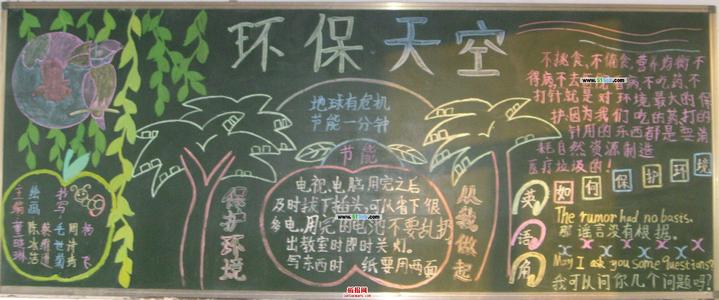 环保天空
地球有危机
节能一分钟
节能
电视、电脑用完之后
及时拔下插头,可以省下很
多电。用完的电池不要乱扔
出教室时即时关灯。
写东西时 纸要用两面
保护环境
从我做起
不挑食,不偏食,营养均衡不
得病不去医院看病不吃药、不
打针就是对环境最大的保
护因为我们吃的药打的
针用的东西都是要消
耗自然资源制造
医疗垃圾的!
如何保护环境
英语角
The rumor had no basis.
那谣言没有根据.
May I ask you some questions?
我可以问你几个问题吗?
主编
绘画
书写